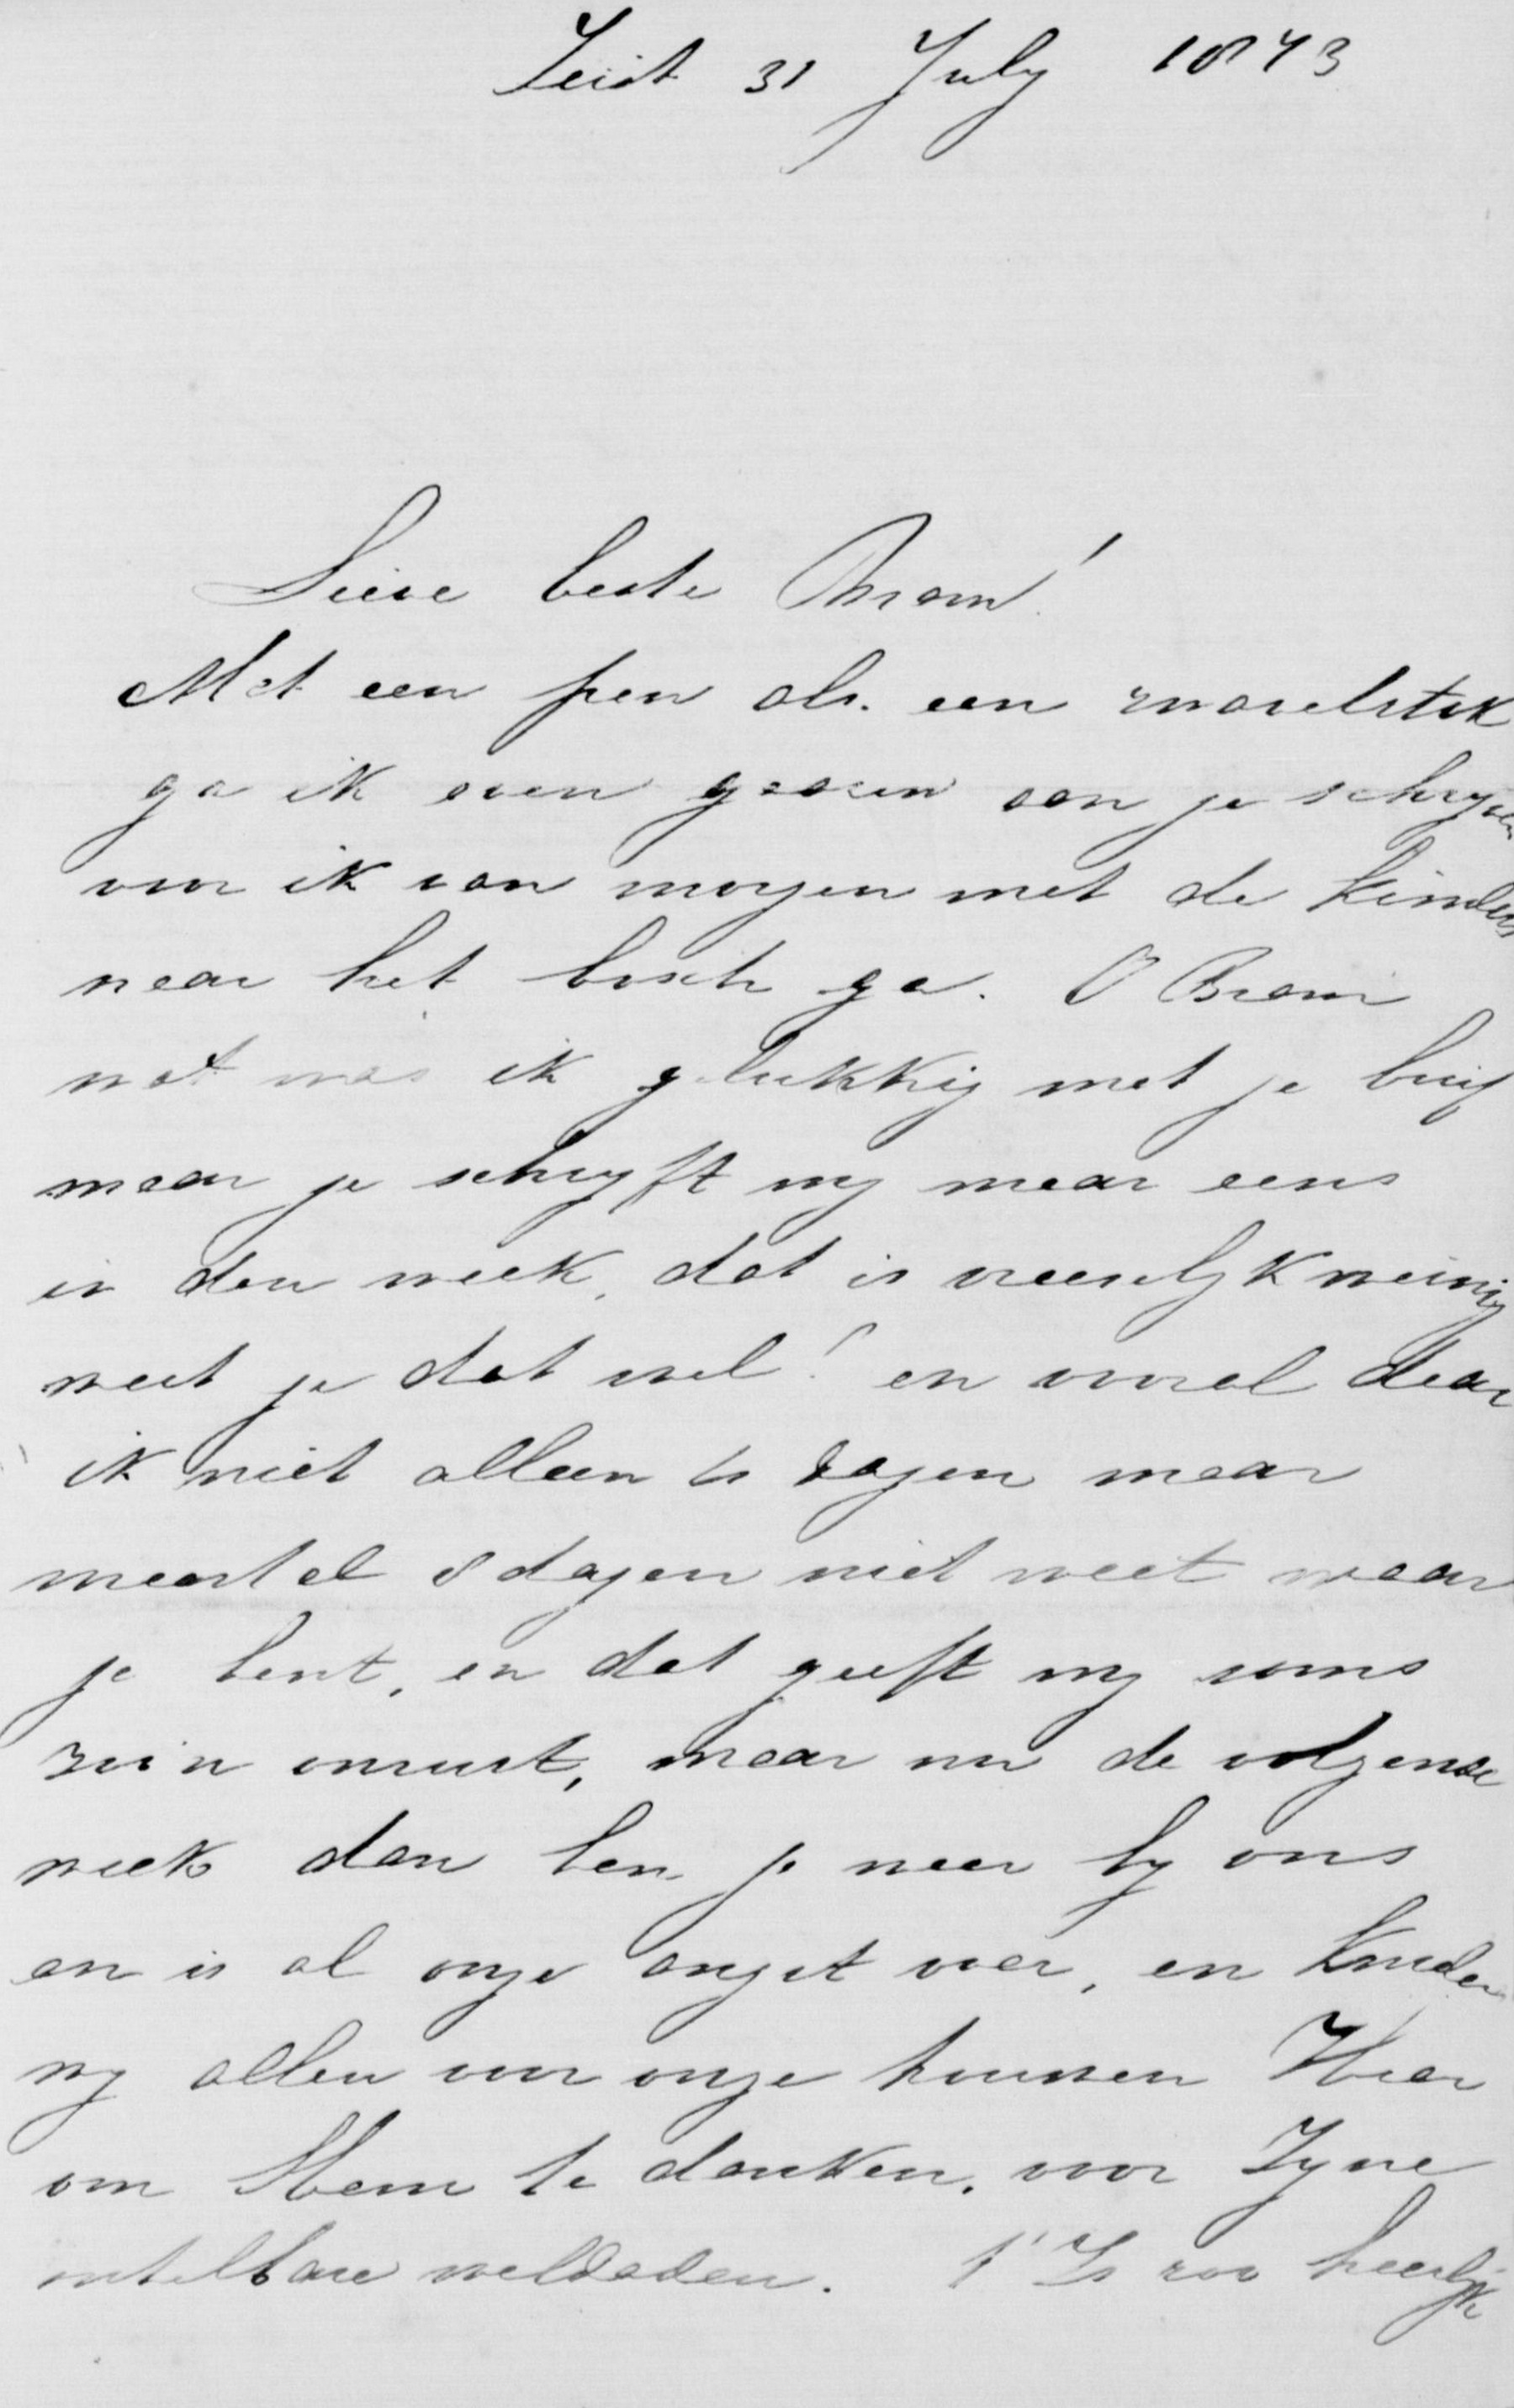 Zeist 31 July 1873
Lieve beste Bram!
Met een pen als een zwavelstok
ga ik even gaauw aan je schryven
voor ik van morgen met de kinders
naar het bosch ga. O Bram
wat was ik gelukkig met je brief
maar je schryft my maar eens
in den week, dat is vreeselyk weinig
weet je dat wel! en vooral daar
ik niet alleen 6 dagen maar
meestal 8 dagen niet weet waar
je bent, en dat geeft my soms
zoo'n onrust, maar nu de volgende
week dan ben je weer by ons
en is al onze angst over, en knielen
wy allen voor onze trouwen Heer
om Hem te danken, voor Zyne
ontelbare weldaden. t' Is zoo heerlyk